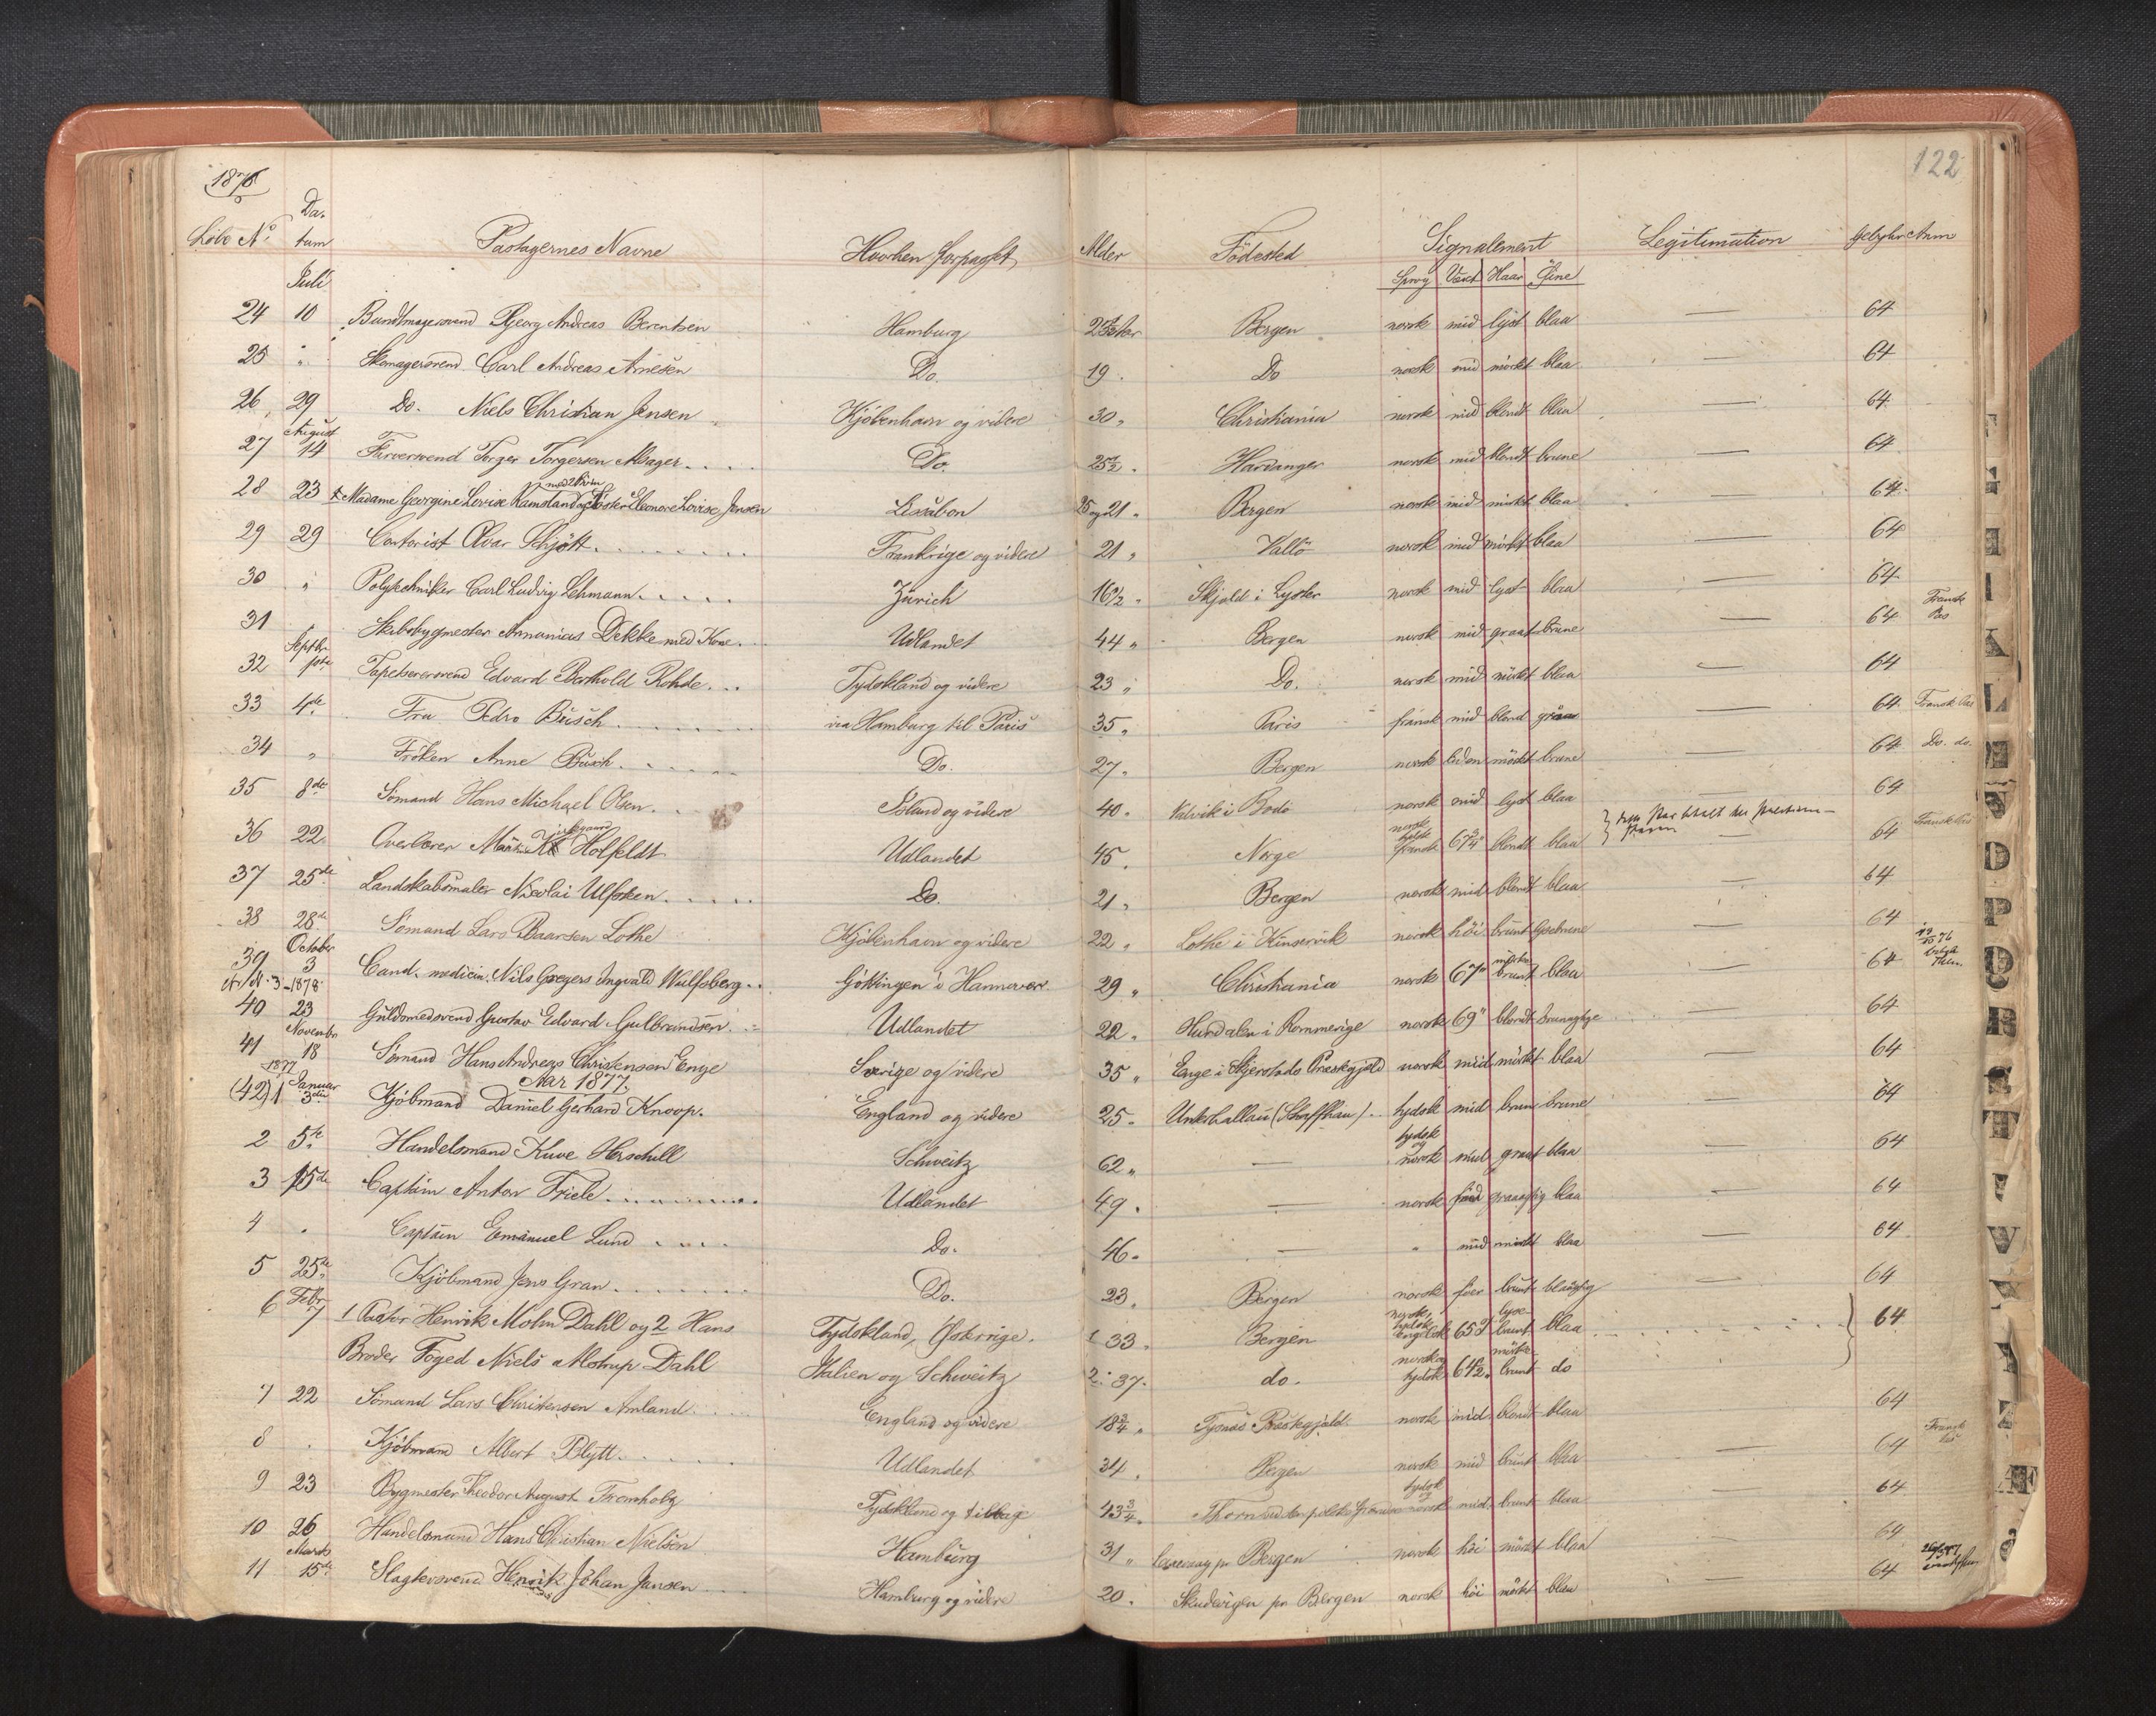 1876
122
Løbe No Datum Passagernes Navne Hvorhen forpasset Alder Fødested Signalement Legitimation Gebyhr Anm
Juli Sprog Vext Haar Øine
24 10 Bundtmagersvend Georg Andreas Berentsen Hamburg Bergen norsk mid lyst blaa — 64
25 " Skomagersvend Carl Andreas Arnesen Do. 19 Do norsk mid mörkt blaa — 64
26 29 Do. Niels Christian Jensen Kjöbenhavn og videre 30 " Christiania norsk mid blondt blaa — 64
August
27 14 Farversvend Torger Torgersen Alsager Do. 25½ Hardanger norsk mid blondt brune — 64
med 2 Börn
28 23 Madame Georgine Lovise Ramsland og Söster Eleonore Lovise Jensen Lissabon 25 og 21 " Bergen norsk mid mörkt blaa — 64
29 29 Contorist Olvar Schjött Frankrige og videre 21 " Vallö norsk mid mörkt blaa — 64
30 " Polytekniker Carl Ludvig Lehmann Zürich 16½ " Skjold i Lyster norsk mid lyst blaa — 64
31 Skibsbygmester Annanias Dekke med Kone Udlandet 44 " Bergen norsk mid graat brune — 64 Fransk Pas
Septbr
32 Tapetserersvend Edvard Berthold Rohde Tydskland og videre 23 " Do. norsk mid mörkt blaa — 64
33 4de Fru Pedro Büsch via Hamburg til Paris 35 " Paris fransk mid blond — 64 Fransk Pas
34 " Fröken Anne Büsch Do. 27 " Bergen norsk liden mörkt brune — 64 Do. do.
35 8de Sömand Hans Michael Olsen Island og videre 40 " i Bodö norsk mid lyst blaa 64
36 22 Overlærer Holfeldt Udlandet 45 Norge norsk tydsk fransk 67¾" blondt blaa — 64 Fransk Pas
37 25de Landskabsmaler Nicolai Ulfsten Do. 21 " Bergen norsk mid blondt blaa — 64
38 28de Sömand Lars Baarsen Lothe Kjöbenhavn og videre 22 " Lothe i Kinservik norsk höi brunt lysebrune — 64
October
39 3 Cand. medicin. Nils Gregers Ingvald Wulfsberg Göttingen i Hannover 29 " Christiania norsk 67" mörke brunt blaa — 64
1878
40 23 Guldsmedsvend Gustav Edvard Gulbrandsen Udlandet 22 " Hundalen i Rommerige norsk 69" blondt 64
November
41 18 Sömand Hans Andreas Christensen Enge Sverige og videre 35 " Enge i Skjerstads Præstegjeld norsk mid mörkt blaa — 64
1877 Aar 1877.
Januar
(42) 1 3die Kjöbmand Daniel Gerhard Knoop. England og videre 25 " Unterhallau (Schaffhau) tydsk mid brun brune — 64
2 5te Handelsmand Kuve Herschell Schweitz 62 " — tydsk og norsk mid graat blaa — 64
3 15de Captain Anton Friele Udlandet 49 " — norsk blaa — 64
4 " Captain Emanuel Lund Do. 46 " — " mid mörkt blaa — 64
5 25de Kjöbmand Jens Gran Do. 23 " Bergen norsk före brunt — 64
Febr
6 7 1 Pastor Henrik Mohn Dahl og 2 Hans Tydskland, Østerrige, 1 33 " Bergen norsk tydsk engelsk lyse brunt blaa 64
Broder Foged Niels Alstrup Dahl Italien og Schweitz 2: 37 " do. norsk og tydsk 64½" mörke brunt do
7 22 Sömand Lars Christensen Amland England og videre 18¾ " Tysnæs Præstegjæld. norsk mid blondt blaa 64
8 " Kjöbmand Albert Blytt Udlandet 34 " Bergen norsk mid brunt blaa — 64 Fransk Pas
9 23 Bygmester Theodor August Fromholtz Tydskland og tilbage 43¾ " Thorn tydsk og norsk mid brunt blaa — 64
10 26 Handelsmand Hans Christian Nielsen Hamburg 31 " pr Bergen norsk höi mörkt blaa — 64
Marts
11 15de Slagtersvend Henrik Johan Jansen Hamburg og videre 20 " Skudevigen pr Bergen norsk höi mörkt blaa — 64